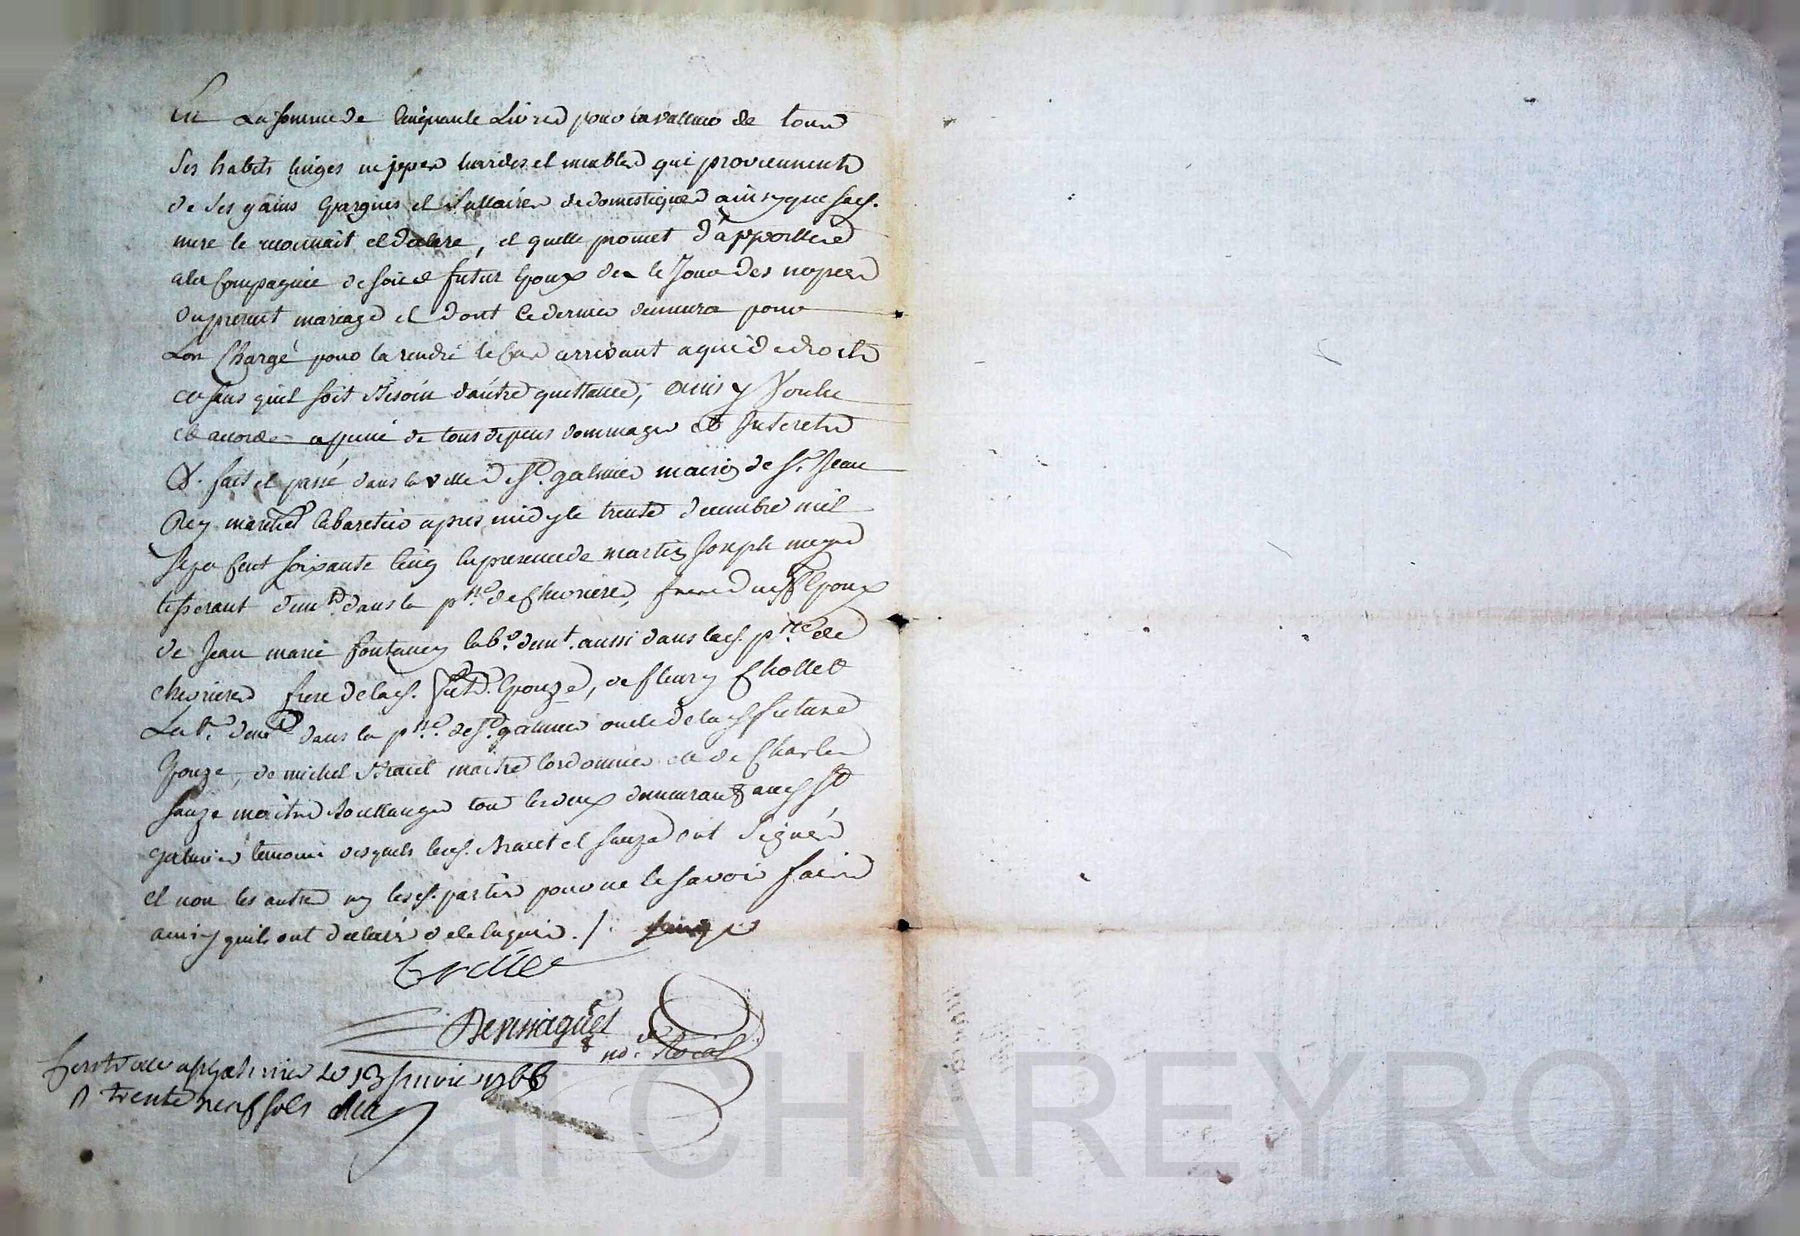 En La somme de Cinquante Livres pour la valleur de tous
Ses habits linges nippes hardes et meubles qui proviennent
de ses gains Epargnes et Sallaires de domestique ainsy que sad.
mere le reconnait et declare, et quelle promet d'apporter
a la Compagnie de son d. futur Epoux des le Jour des nopces
du present mariage et dont Ce dernier demeure pour
Lors Chargé pour la rendre le Cas arrivant a qui de droit
ce sans quil soit Besoin d'autre quittance, ainsy Voulu
et accordé a peine de tous depens dommages et Interets
&. fait et passé dans la ville de St. galmier maison de Sr. Jean
Rey marchd. Cabaretier apres midy le trente decembre mil
Sept Cent Soixante Cinq En presence de Joseph
tisserant demt. dans la psse. de Chevrieres, frere dud. f. Epoux
de Jean marie fontaney lab. demt. aussi dans lad. psse. de
Chevrieres frere de lad. fut. Epouze, de fleury Chollet
Lab. demt. dans la psse. de St. galmier oncle de lad. future
Epouze, de michel Bracet maitre Cordonnier et de Charles
Sauze maitre Boullanger tous les deux demeurant aud. St
galmier temoins desquels lesd. Bracet et Sauze ont Signés
et non les autres ny lesd. parties pour ne le savoir faire
ainsy quils ont declaré de ce Enquis. /. Sauze
Desmagues
no. Roial
Controllé a St galmier Le 13 Janvier 1766
R trente neuf sols
CHAREYRON